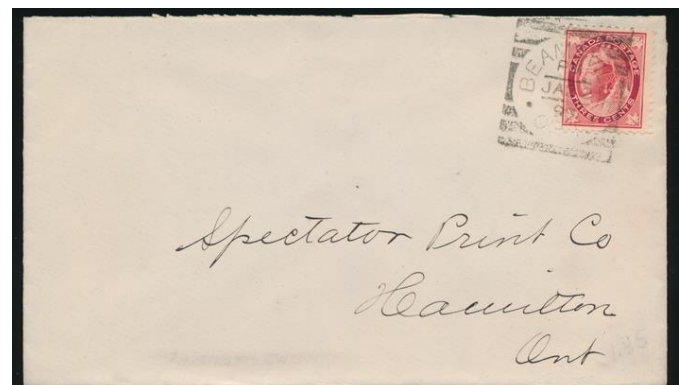 CANADA POSTAGE
THREE CENTS
JA
Spectator Print Co
Hamilton
Ont